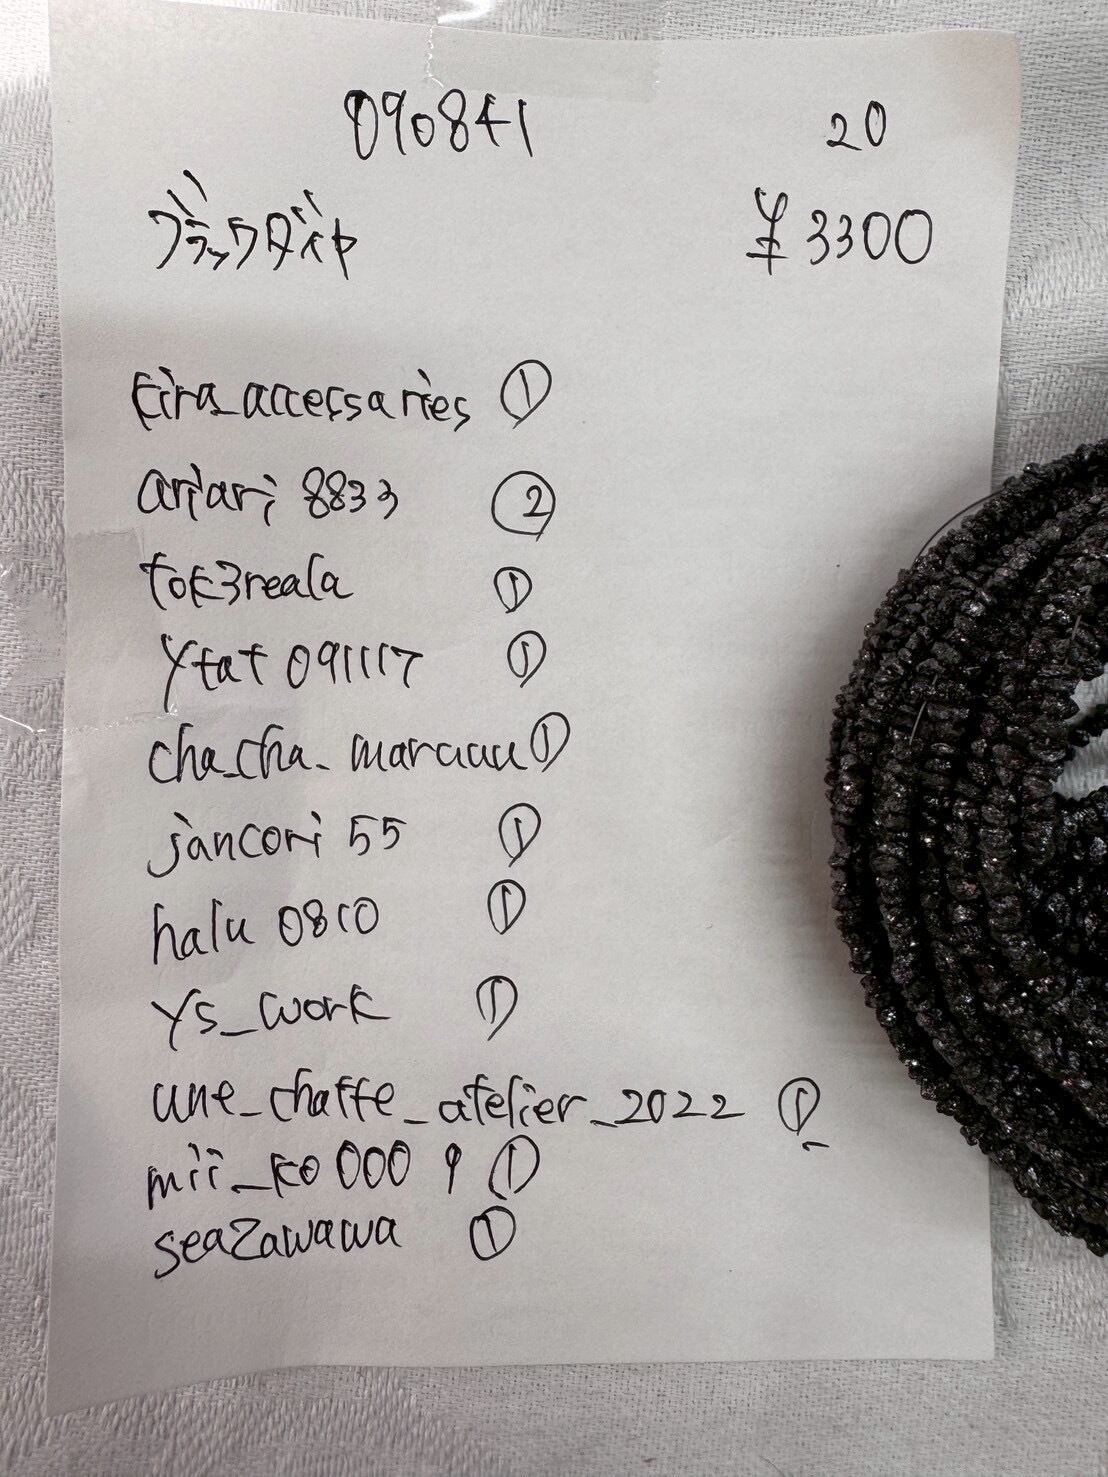 090841 20
ブラックダイヤ ¥3300
kira_accessaries ①
ariari 8833 ②
tok3reala ①
ytat 091117 ①
cha_cha_maruuu ①
jancori 55 ①
halu 0810 ①
ys_work ①
une_chatte_atelier_2022 ①
mii_ko 0009 ①
seazawawa ①